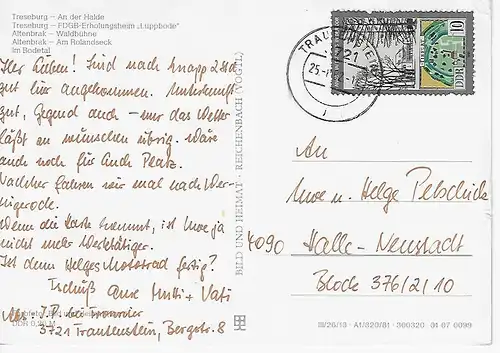 Treseburg – An der Halde
Treseburg – FDGB-Erholungsheim „Luppbode"
Altenbrak – Waldbühne
Altenbrak – Am Rolandseck
im Bodetal
Ihr Lieben! Sind nach knapp 2 Std
gut hier angekommen. Unterkunft
gut, Gegend auch – nur das Wetter
läßt zu wünschen übrig. Wäre
auch noch für Euch Platz.
Nachher fahren wir mal nach Wer-
nigerode.
Wenn die Karte kommt, ist Uwe ja
nicht mehr Werktätiger.
Ist denn Helges Motorrad fertig?
Tschüß Eure Mutti + Vati
Abs.: J. P. bei
3721 Trautenstein, Bergstr. 8
DDR 0,20 M
BILD UND HEIMAT · REICHENBACH (VOGTL)
TRAUTENSTEIN
3721
25.
10
DDR
An
Uwe u. Helge
4090 Halle-Neustadt
Block 376/2/10
III/26/13 · A1/820/81 · 300320 01 07 0099